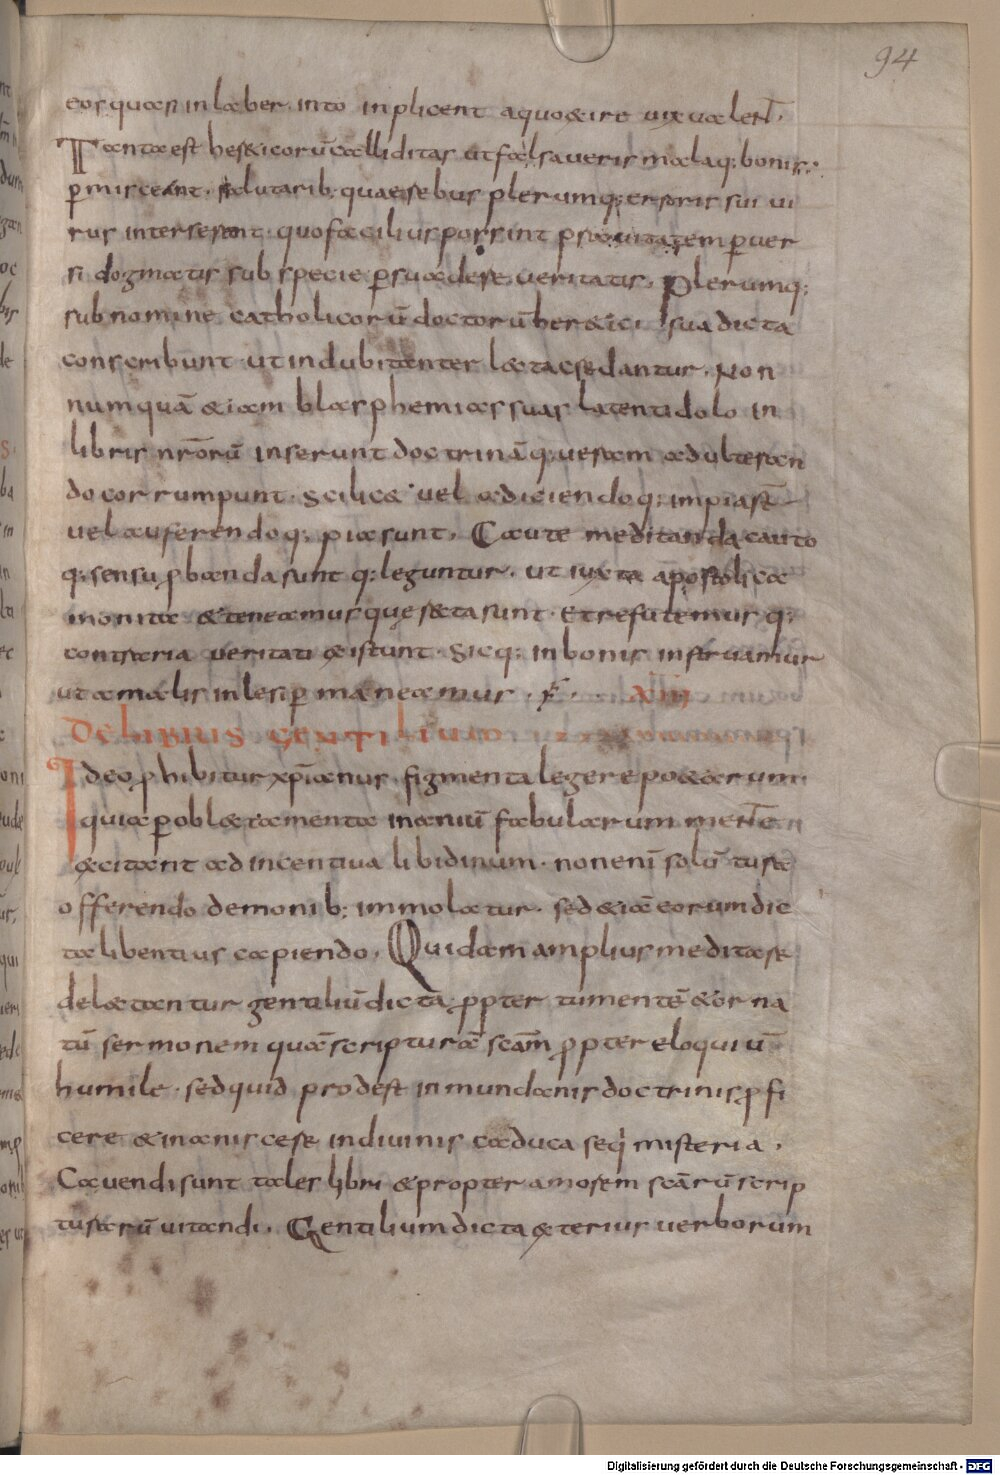 94
eos quasi in laberinto inplicent a quo exire vix valent.
Tanta est hereticorū calliditas ut falsa veris malaq; bonis.
p̄misceant. salutarib; quae rebus plerumq; erroris sui vi
rus interserant. quo facilius possint p̄suavitatem p̄ver
si dogmatis sub specie p̄suadere veritatis. Plerumq;
sub nomine catholicorū doctorū heretici sua dicta
conscribunt ut indubitanter lecta credantur. Non
numquā &iam blasphemias suas latenti dolo in
libris nr̄orū inserunt doctrināq; veram adulteran
do corrumpunt. Scilic& vel adiciendo q; impia st̄
vel auferendo q; pia sunt. Caute meditanda cauto
q; sensu p̱banda sunt q; leguntur. ut iuxta apostolica
monita &teneamus que recta sunt. Et refutemus q;
contraria veritati existunt. Sicq; in bonis instruamur
ut a malis inlesi p̄maneamus. F. XIII
DE LIBRIS GENTILIUM
Ideo p̱hibitur xp̄ianus figmenta legere po&arum.
quia p̄ oblectamenta inaniū fabularum ment̄e
excitant ad incentiva libidinum. non enī solū tura
offerendo demonib; immolatur. sed &iā eorum dic
ta libentius capiendo. Quidam amplius meditare
delectantur gentiliū dicta p̱pter tumentē &orna
tū sermonem quā scripturā scām p̱pter eloquiū
humile. sed quid prodest in mundanis doctrinis p̱fi
cere &inanescere in divinis caduca seqi misteria.
Cavendi sunt tales libri &propter amorem scārū scrip
turarū vitandi. Gentilium dicta exterius verborum
Digitalisierung gefördert durch die Deutsche Forschungsgemeinschaft - DFG